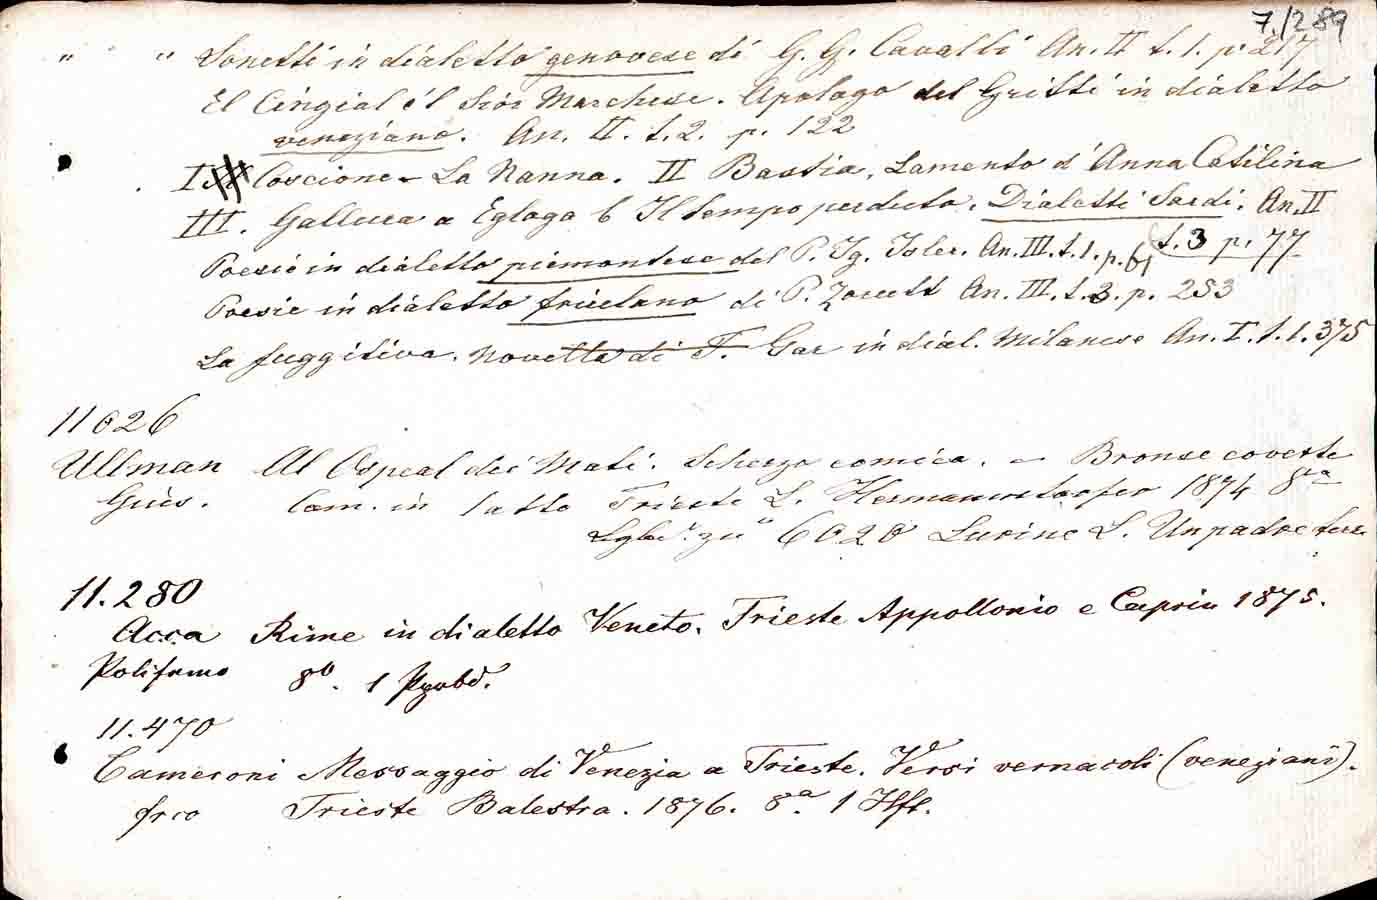 7./289
" " Sonetti in dialetto genovese di G. G. Cavalli An. II t. 1. p. 217
El Cingial e'l Siór Marchese. Apologo del Gritti in dialetto
veneziano. An. II. t. 2. p. 122
I Coscione - La Nanna. II Bastia, Lamento d'Anna Catilina
III. Gallura a Egloga b Il tempo perduto. Dialetti Sardi. An. II
t. 3 p. 77
Poesie in dialetto piemontese del P. Ig. Isler. An. III. t. 1. p. 61
Poesie in dialetto friulano di P. Zorutt An. III. t. 3. p. 253
La fuggitiva. Novella di T. in dial. Milanese An. I. t. 1. 375
11026
Ullman Al Ospeal dei Mati. Scherzo comico. - Bronse coverte
Giús. Com. in 1 atto Trieste L. Hermannstorfer 1874 8º
zu 6020 L. Un padre
11.280
Acca Rime in dialetto Veneto. Trieste Appollonio e Caprin 1875.
Polifemo 8º. 1 Ppbd.
11.470
Cameroni Messaggio di Venezia a Trieste. Versi vernacoli (veneziani).
frco Trieste Balestra. 1876. 8º. 1 Hft.